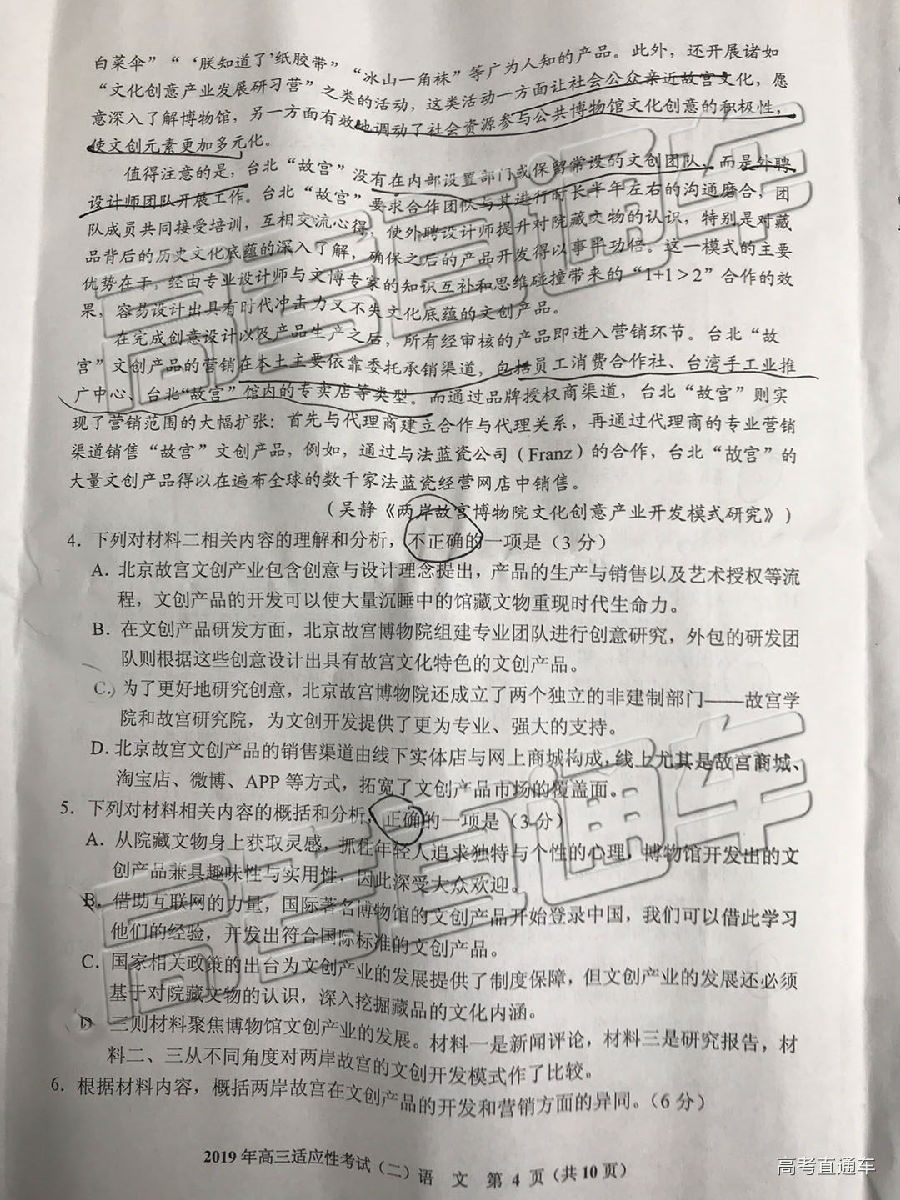 白菜伞”“‘朕知道了’纸胶带”“冰山一角袜”等广为人知的产品。此外，还开展诸如
“文化创意产业发展研习营”之类的活动，这类活动一方面让社会公众亲近故宫文化，愿
意深入了解博物馆，另一方面有效地调动了社会资源参与公共博物馆文化创意的积极性，
使文创元素更加多元化。
值得注意的是，台北“故宫”没有在内部设置部门或保留常设的文创团队，而是外聘
设计师团队开展工作。台北“故宫”要求合作团队与其进行时长半年左右的沟通磨合，团
队成员共同接受培训，互相交流心得，使外聘设计师提升对院藏文物的认识，特别是对藏
品背后的历史文化底蕴的深入了解，确保之后的产品开发得以事半功倍。这一模式的主要
优势在于，经由专业设计师与文博专家的知识互补和思维碰撞带来的“1+1＞2”合作的效
果，容易设计出具有时代冲击力又不失文化底蕴的文创产品。
在完成创意设计以及产品生产之后，所有经审核的产品即进入营销环节。台北“故
宫”文创产品的营销在本土主要依靠委托承销渠道，包括员工消费合作社、台湾手工业推
广中心、台北“故宫”馆内的专卖店等类型。而通过品牌授权商渠道，台北“故宫”则实
现了营销范围的大幅扩张：首先与代理商建立合作与代理关系，再通过代理商的专业营销
渠道销售“故宫”文创产品，例如，通过与法蓝瓷公司（Franz）的合作，台北“故宫”的
大量文创产品得以在遍布全球的数千家法蓝瓷经营网店中销售。
（吴静《两岸故宫博物院文化创意产业开发模式研究》）
4. 下列对材料二相关内容的理解和分析，不正确的一项是（3分）
A. 北京故宫文创产业包含创意与设计理念提出，产品的生产与销售以及艺术授权等流
程，文创产品的开发可以使大量沉睡中的馆藏文物重现时代生命力。
B. 在文创产品研发方面，北京故宫博物院组建专业团队进行创意研究，外包的研发团
队则根据这些创意设计出具有故宫文化特色的文创产品。
C. 为了更好地研究创意，北京故宫博物院还成立了两个独立的非建制部门——故宫学
院和故宫研究院，为文创开发提供了更为专业、强大的支持。
D. 北京故宫文创产品的销售渠道由线下实体店与网上商城构成，线上尤其是故宫商城、
淘宝店、微博、APP 等方式，拓宽了文创产品市场的覆盖面。
5. 下列对材料相关内容的概括和分析，正确的一项是（3分）
A. 从院藏文物身上获取灵感，抓住年轻人追求独特与个性的心理，博物馆开发出的文
创产品兼具趣味性与实用性，因此深受大众欢迎。
B. 借助互联网的力量，国际著名博物馆的文创产品开始登录中国，我们可以借此学习
他们的经验，开发出符合国际标准的文创产品。
C. 国家相关政策的出台为文创产业的发展提供了制度保障，但文创产业的发展还必须
基于对院藏文物的认识，深入挖掘藏品的文化内涵。
D 三则材料聚焦博物馆文创产业的发展。材料一是新闻评论，材料三是研究报告，材
料二、三从不同角度对两岸故宫的文创开发模式作了比较。
6. 根据材料内容，概括两岸故宫在文创产品的开发和营销方面的异同。（6分）
2019年高三适应性考试（二）语 文 第 4 页（共10页）
高考直通车
高考直通车
高考直通车